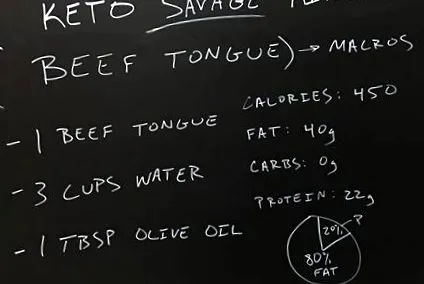 KETO SAVAGE
BEEF TONGUE) → MACROS
CALORIES: 450
- 1 BEEF TONGUE
FAT: 40g
CARBS: 0g
- 3 CUPS WATER
PROTEIN: 22g
- 1 TBSP OLIVE OIL
20%
P
80%
FAT